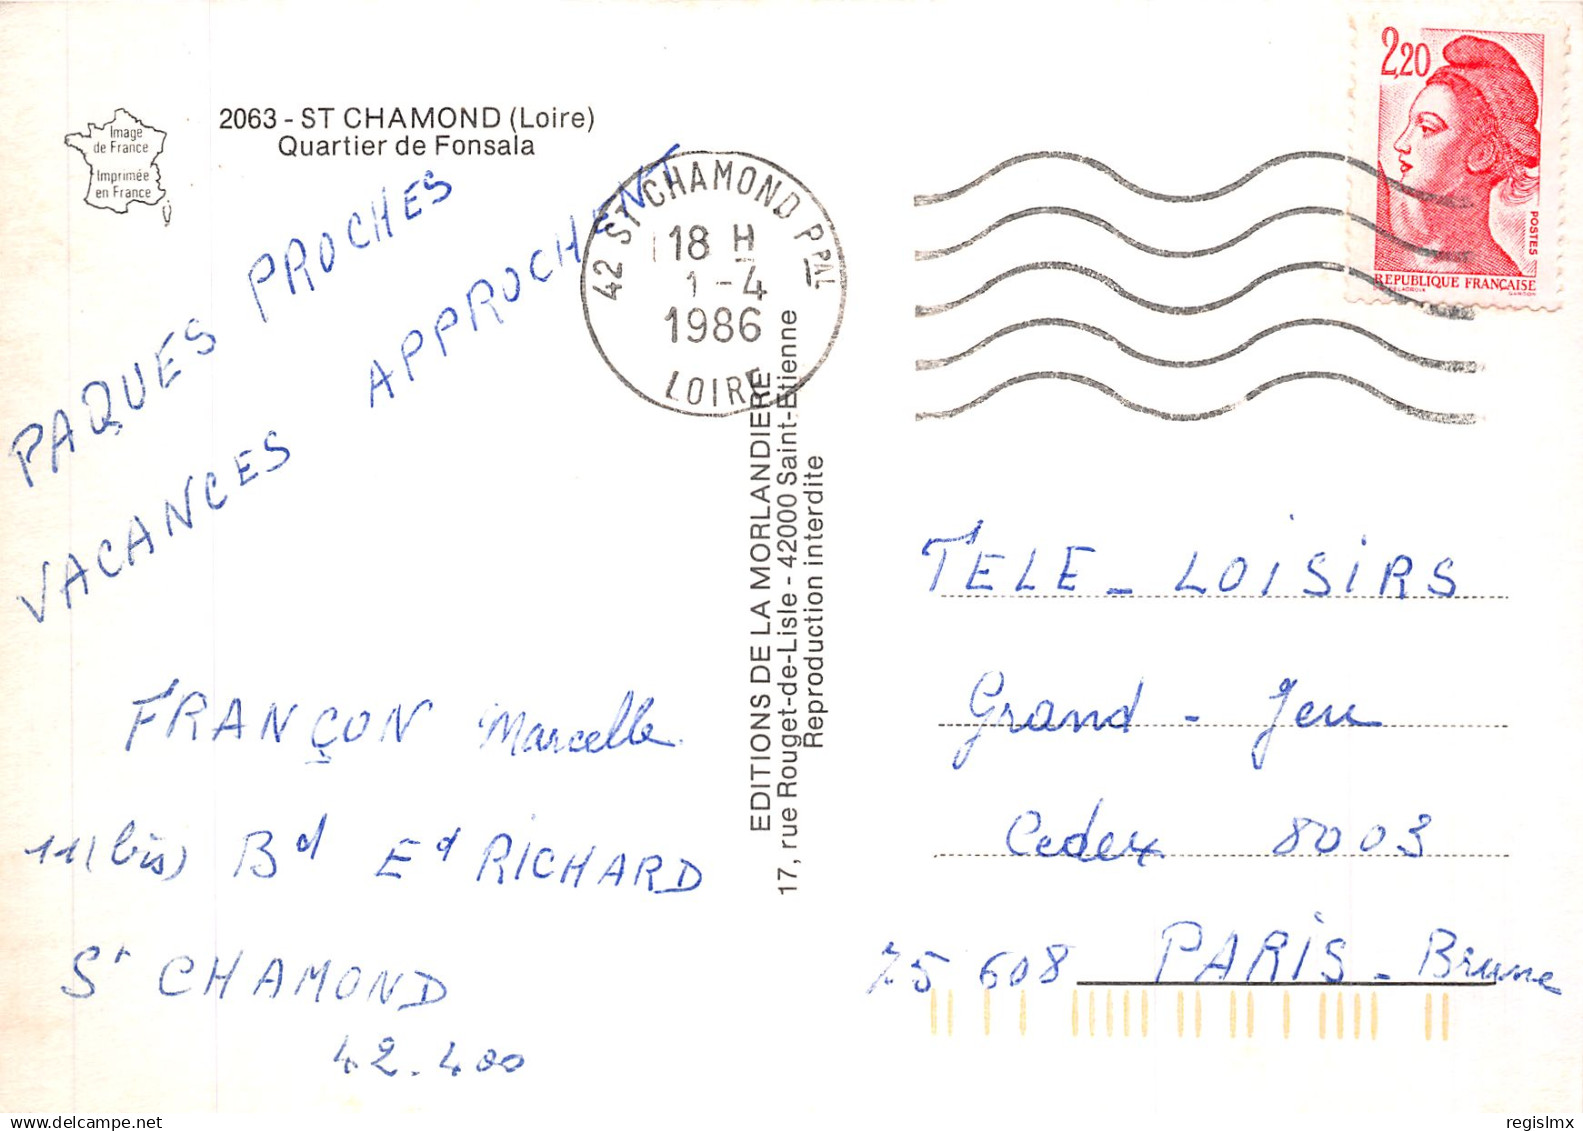 2063 - ST CHAMOND (Loire)
Quartier de Fonsala
Image
de France
Imprimée
en France
PAQUES PROCHES
VACANCES APPROCHENT
FRANÇON Marcelle
11 (bis) Bd Ed RICHARD
St CHAMOND
42.400
42 ST CHAMOND PPAL
18 H
1-4
1986
LOIRE
EDITIONS DE LA MORLANDIERE
17, rue Rouget-de-Lisle - 42000 Saint-Etienne
Reproduction interdite
2,20
POSTES
REPUBLIQUE FRANÇAISE
TELE - LOISIRS
Grand - Jeu
Cedex 8003
75 608 PARIS - Brune
regislmx